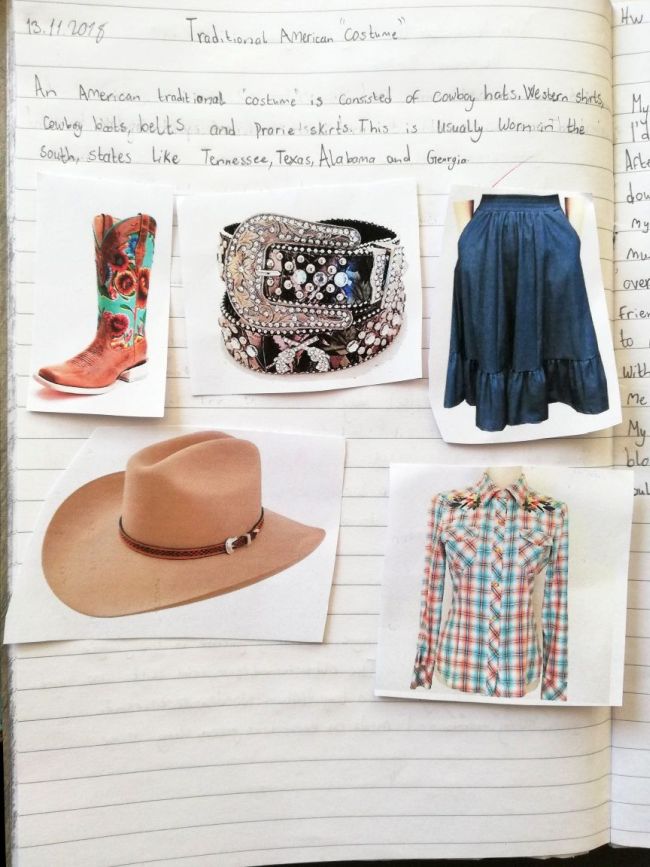 13.11.2018 Traditional American "Costume"
An American traditional "costume" is consisted of cowboy hats, Western shirts,
cowboy boots, belts and Prarie skirts. This is usually worn in the
south, states like Tennessee, Texas, Alabama and Georgia
HW
My
I'd
Afte
dow
my
mu
over
frien
to
With
me
My
blo